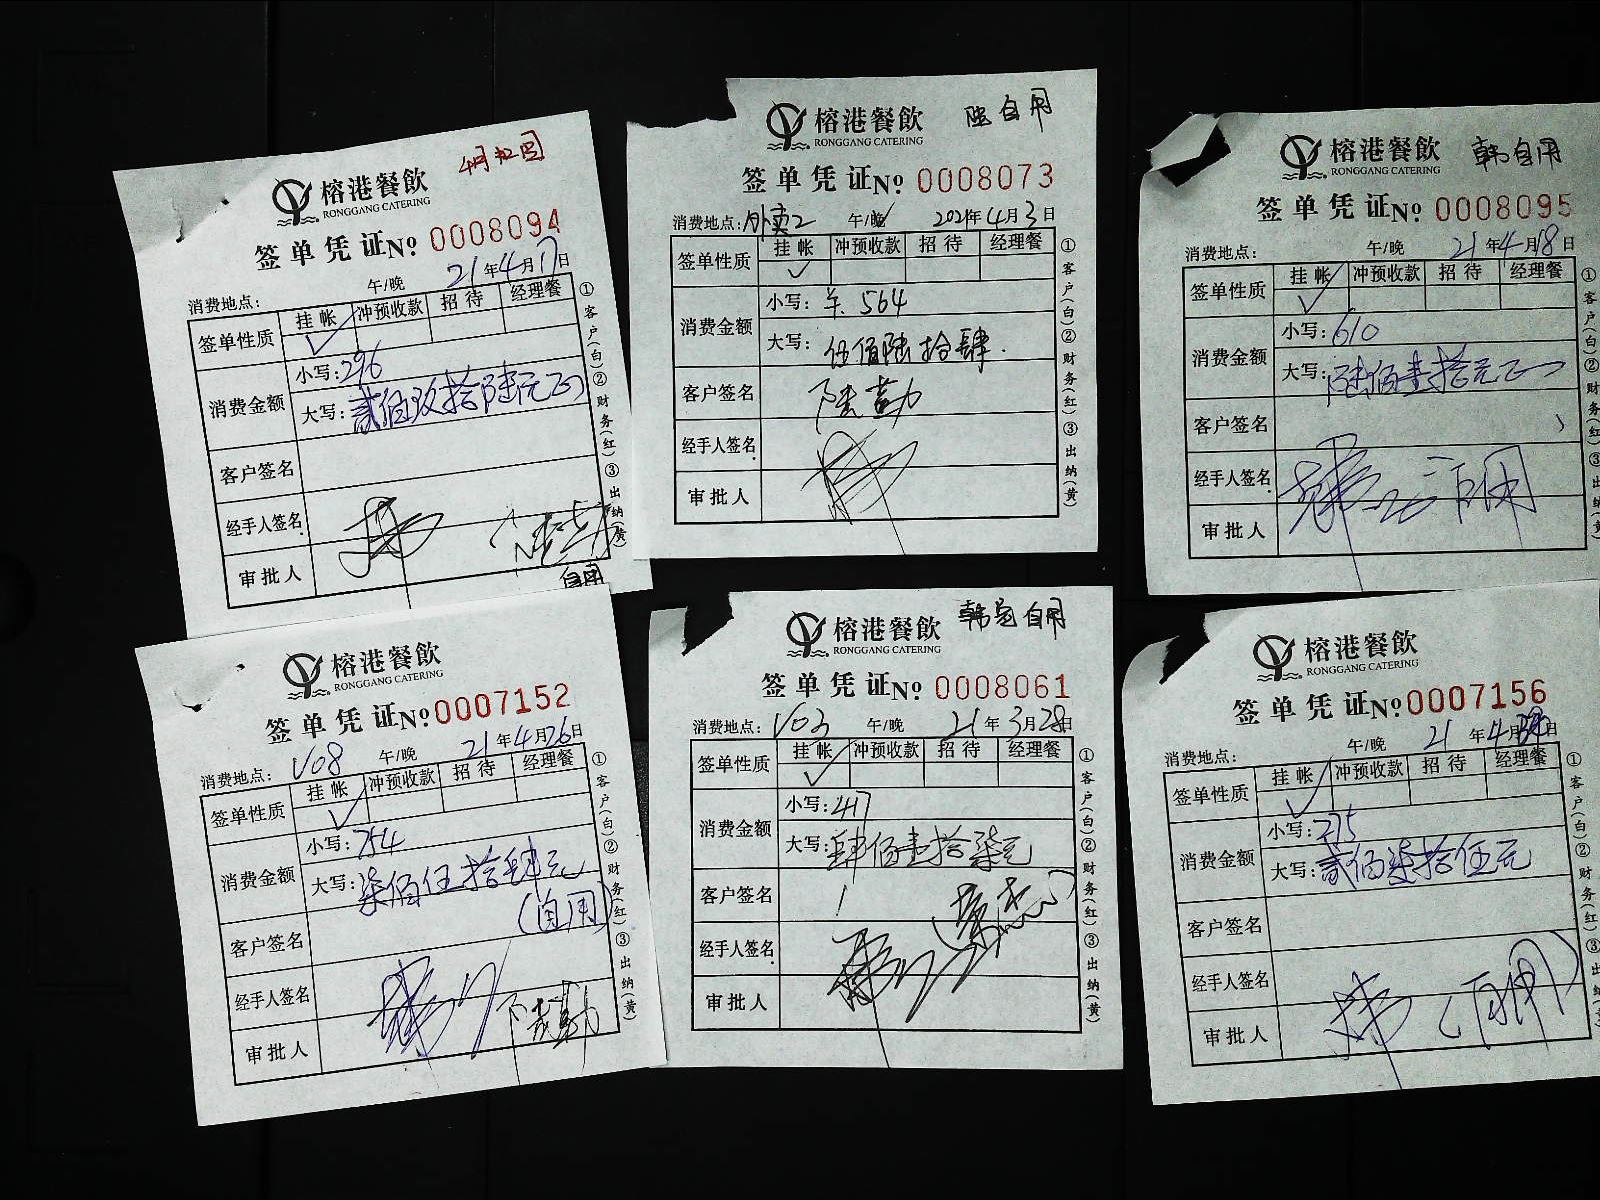 榕港餐飲
RONGGANG CATERING
签单凭证 № 0008094
午/晚 21年4月17日
消费地点:
签单性质 挂帐 冲预收款 招待 经理餐
✓
消费金额
小写: 296
大写: 贰佰玖拾陆元正
客户签名
经手人签名
审批人
自用
①客户(白)②财务(红)③出纳(黄)
榕港餐飲
陆自用
RONGGANG CATERING
签单凭证 № 0008073
消费地点: 外卖2 午/晚 2021年4月3日
签单性质 挂帐 冲预收款 招待 经理餐
✓
消费金额
小写: 羊. 564
大写: 伍佰陆拾肆.
客户签名
经手人签名
审批人
①客户(白)②财务(红)③出纳(黄)
榕港餐飲
韩自用
RONGGANG CATERING
签单凭证 № 0008095
午/晚 21年4月18日
消费地点:
签单性质 挂帐 冲预收款 招待 经理餐
✓
消费金额
小写: 610
大写: 陆佰壹拾元正
客户签名
经手人签名
自用
审批人
①客户(白)②财务(红)③出纳(黄)
榕港餐飲
RONGGANG CATERING
签单凭证 № 0007152
消费地点: V08 午/晚 21年4月26日
签单性质 挂帐 冲预收款 招待 经理餐
✓
消费金额
小写: 754
大写: 柒佰伍拾肆元
(自用)
客户签名
经手人签名
审批人
①客户(白)②财务(红)③出纳(黄)
榕港餐飲
自用
RONGGANG CATERING
签单凭证 № 0008061
消费地点: V03 午/晚 21年3月28日
签单性质 挂帐 冲预收款 招待 经理餐
✓
消费金额
小写: 417
大写: 肆佰壹拾柒元
客户签名
经手人签名
审批人
①客户(白)②财务(红)③出纳(黄)
榕港餐飲
RONGGANG CATERING
签单凭证 № 0007156
午/晚 21年4月 日
消费地点:
签单性质 挂帐 冲预收款 招待 经理餐
✓
消费金额
小写: 275
大写: 贰佰柒拾伍元
客户签名
经手人签名
(自用)
审批人
①客户(白)②财务(红)③出纳(黄)